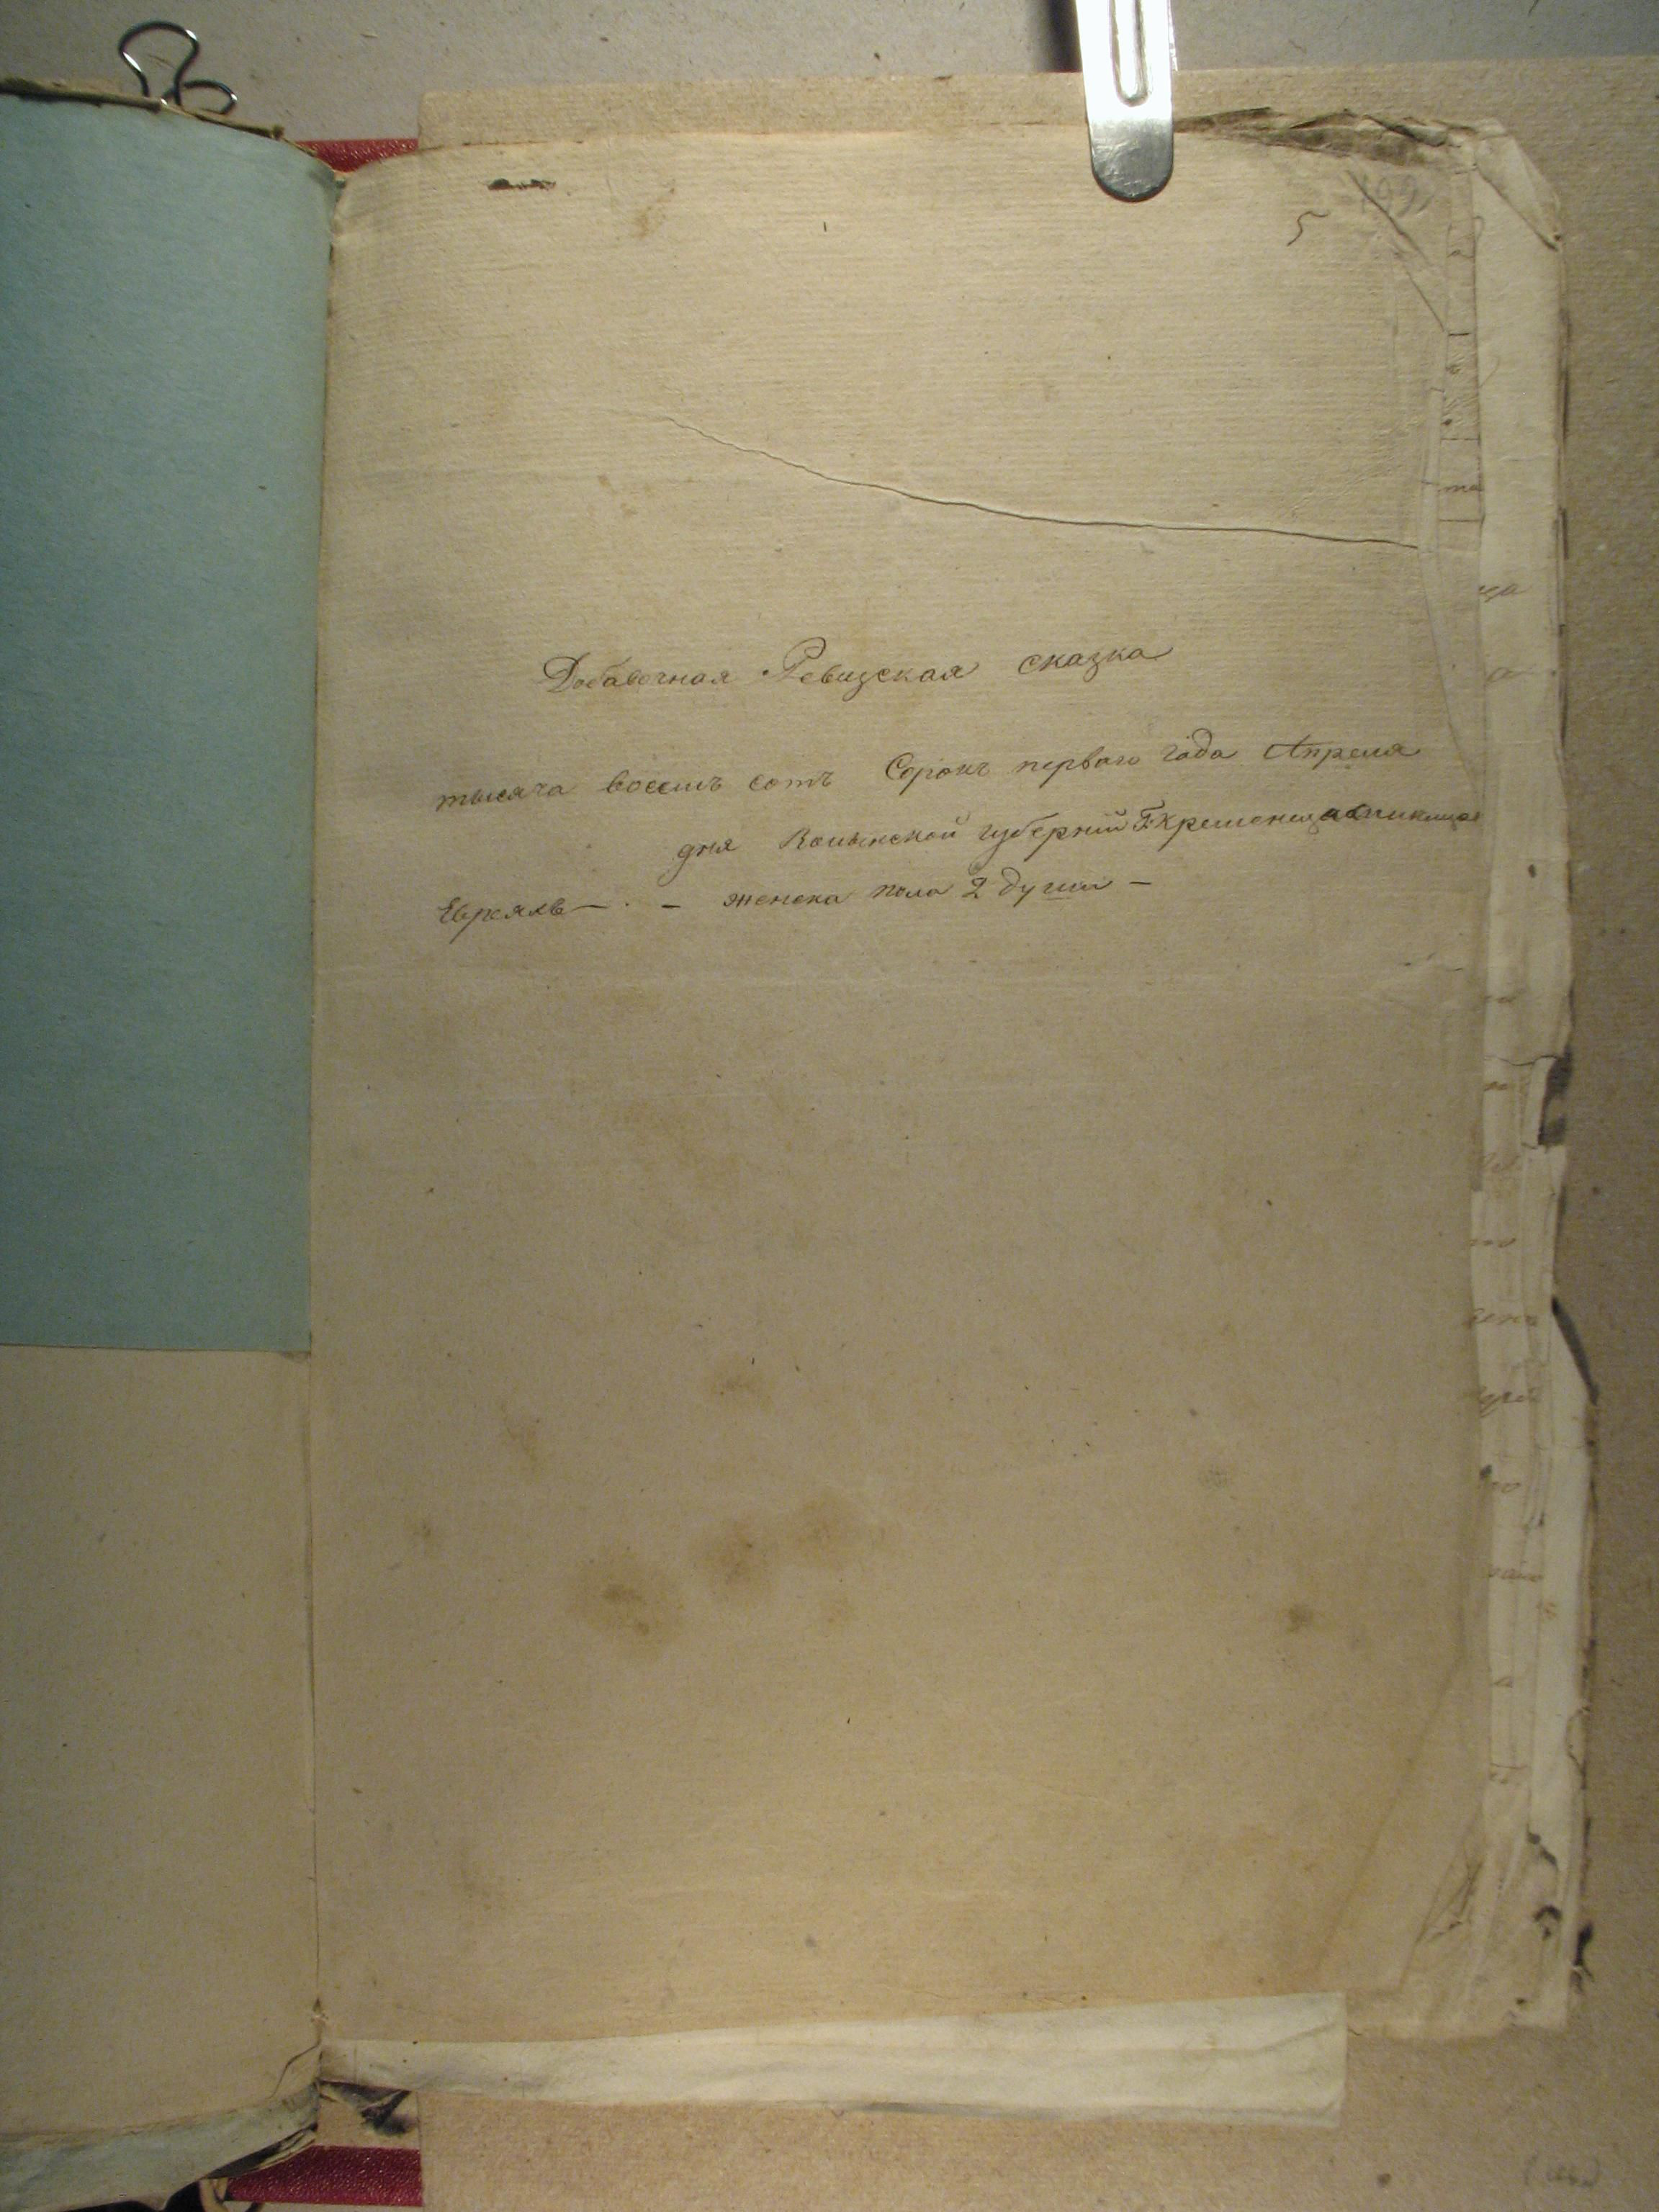 5
Добавочная Ревизская сказка
тысяча восемь сотъ Сорокъ перваго года Апреля
дня Волынской губерніи Г: Кременца
Евреяхъ — женска пола 2 души —